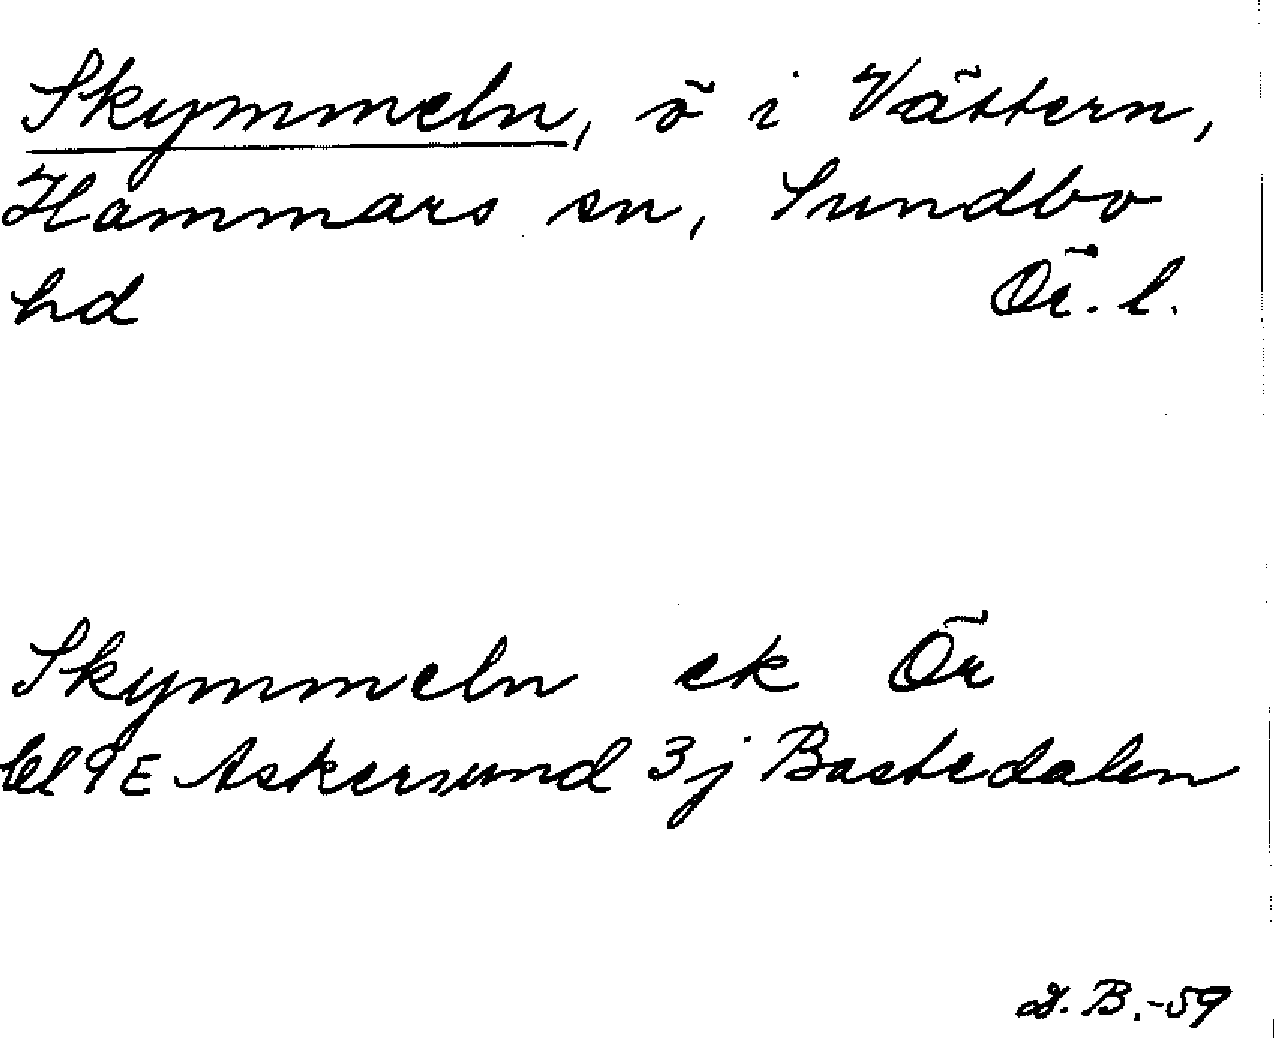 Skymmeln, ö i Vättern,
Hammars sn, Sundbo
hd Ör. l.
Skymmeln ek Ör
bl 9E Askersund 3j Bastedalen
J. B. -59